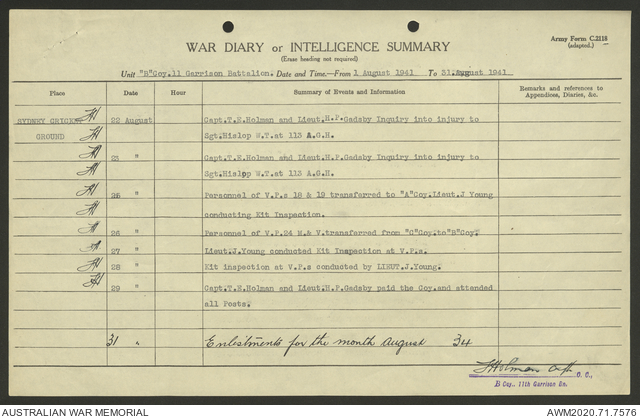 Army Form C.2118
(adapted.)
WAR DIARY or INTELLIGENCE SUMMARY
(Erase heading not required)
Unit "B"Coy.11 Garrison Battalion. Date and Time.—From 1 August 1941 To 31 August 1941
Place Date Hour Summary of Events and Information Remarks and references to Appendices, Diaries, &c.
SYDNEY CRICKET 22 August Capt.T.E.Holman and Lieut.H.P.Gadsby Inquiry into injury to
GROUND Sgt.Hislop W.T.at 113 A.G.H.
23 " Capt.T.E.Holman and Lieut.H.P.Gadsby Inquiry into injury to
Sgt.Hislop W.T.at 113 A.G.H.
25 " Personnel of V.P.s 18 & 19 transferred to "A"Coy.Lieut.J Young
conducting Kit Inspection.
26 " Personnel of V.P.24 M.& V.transferred from "C"Coy.to"B"Coy.
27 " Lieut.J.Young conducted Kit Inspection at V.P.s.
28 " Kit inspection at V.P.s conducted by LIEUT.J.Young.
29 " Capt.T.E.Holman and Lieut.H.P.Gadsby paid the Coy.and attended
all Posts.
31 " Enlestments for the month August 34
THolman Capt
O. C.,
B Coy., 11th Garrison Bn.
AUSTRALIAN WAR MEMORIAL AWM2020.71.7576